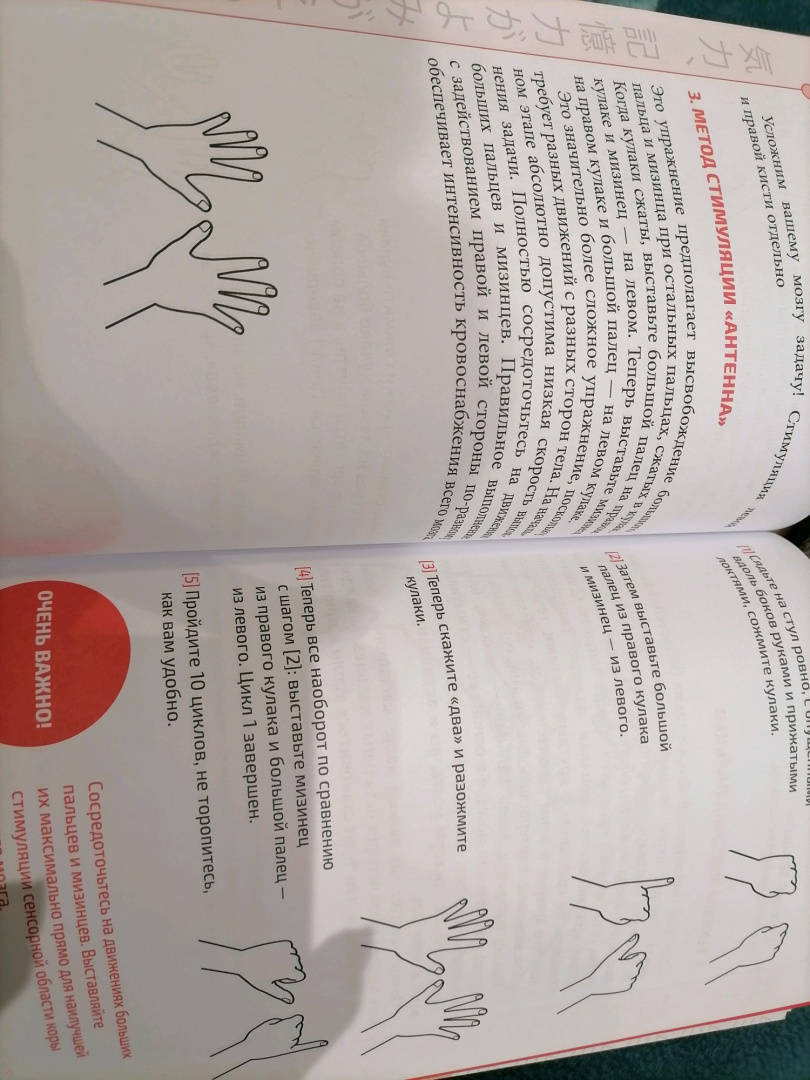 気力、記憶力が
Усложним вашему мозгу задачу! Стимуляция
и правой кисти отдельно
3. МЕТОД СТИМУЛЯЦИИ «АНТЕННА»
Это упражнение предполагает высвобождение
пальца и мизинца при остальных пальцах, сжатых в
Когда кулаки сжаты, выставьте большой палец на
кулаке и мизинец — на левом. Теперь выставьте
на правом кулаке и большой палец — на левом
Это значительно более сложное упражнение,
требует разных движений с разных сторон тела. На
ном этапе абсолютно допустима низкая скорость
нения задачи. Полностью сосредоточьтесь на
больших пальцев и мизинцев. Правильное
с задействованием правой и левой стороны
обеспечивает интенсивность кровоснабжения всего
[1] Сядьте на стул ровно, с опущенными
вдоль боков руками и прижатыми
локтями, сожмите кулаки.
[2] Затем выставьте большой
палец из правого кулака
и мизинец — из левого.
[3] Теперь скажите «два» и разожмите
кулаки.
[4] Теперь все наоборот по сравнению
с шагом [2]: выставьте мизинец
из правого кулака и большой палец —
из левого. Цикл 1 завершен.
[5] Пройдите 10 циклов, не торопитесь,
как вам удобно.
ОЧЕНЬ ВАЖНО!
Сосредоточьтесь на движениях больших
пальцев и мизинцев. Выставляйте
их максимально прямо для наилучшей
стимуляции сенсорной области коры
мозга.